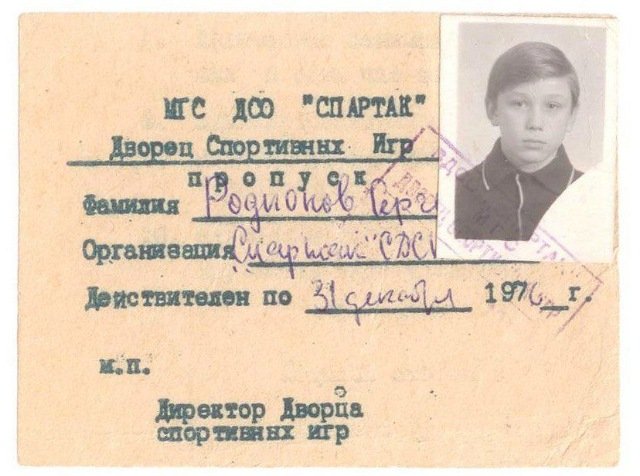 МГС ДСО "СПАРТАК"
Дворец Спортивных Игр
пропуск
Фамилия Родионов Серг
Организация "Спартак" СДС
Действителен по 31 декабря 1976 г.
м.п.
Директор Дворца
спортивных игр